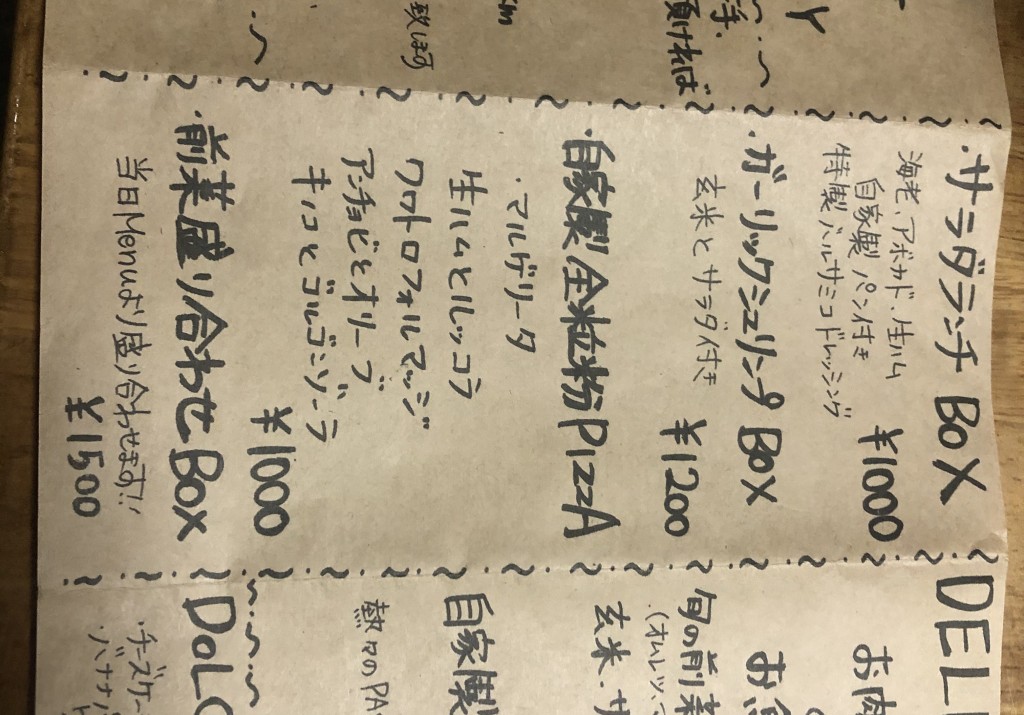 ・サラダランチ BOX
海老、アボカド、生ハム
自家製パン付き
特製バルサミコドレッシング
¥1000
・ガーリックシュリンプ BOX
玄米とサラダ付き
¥1200
・自家製全粒粉PIZZA
・マルゲリータ
生ハムとルッコラ
クワトロフォルマッジ
アンチョビとオリーブ
キノコとゴルゴンゾーラ
¥1000
・前菜盛り合わせBOX
当日Menuより盛り合わせます!!
¥1500
頂ければ
致します
DEL
お肉
お魚
旬の前菜
(オムレツ、
玄米・サ
自家製
熱々のPA
DOLC
・チーズケー
・バナナ